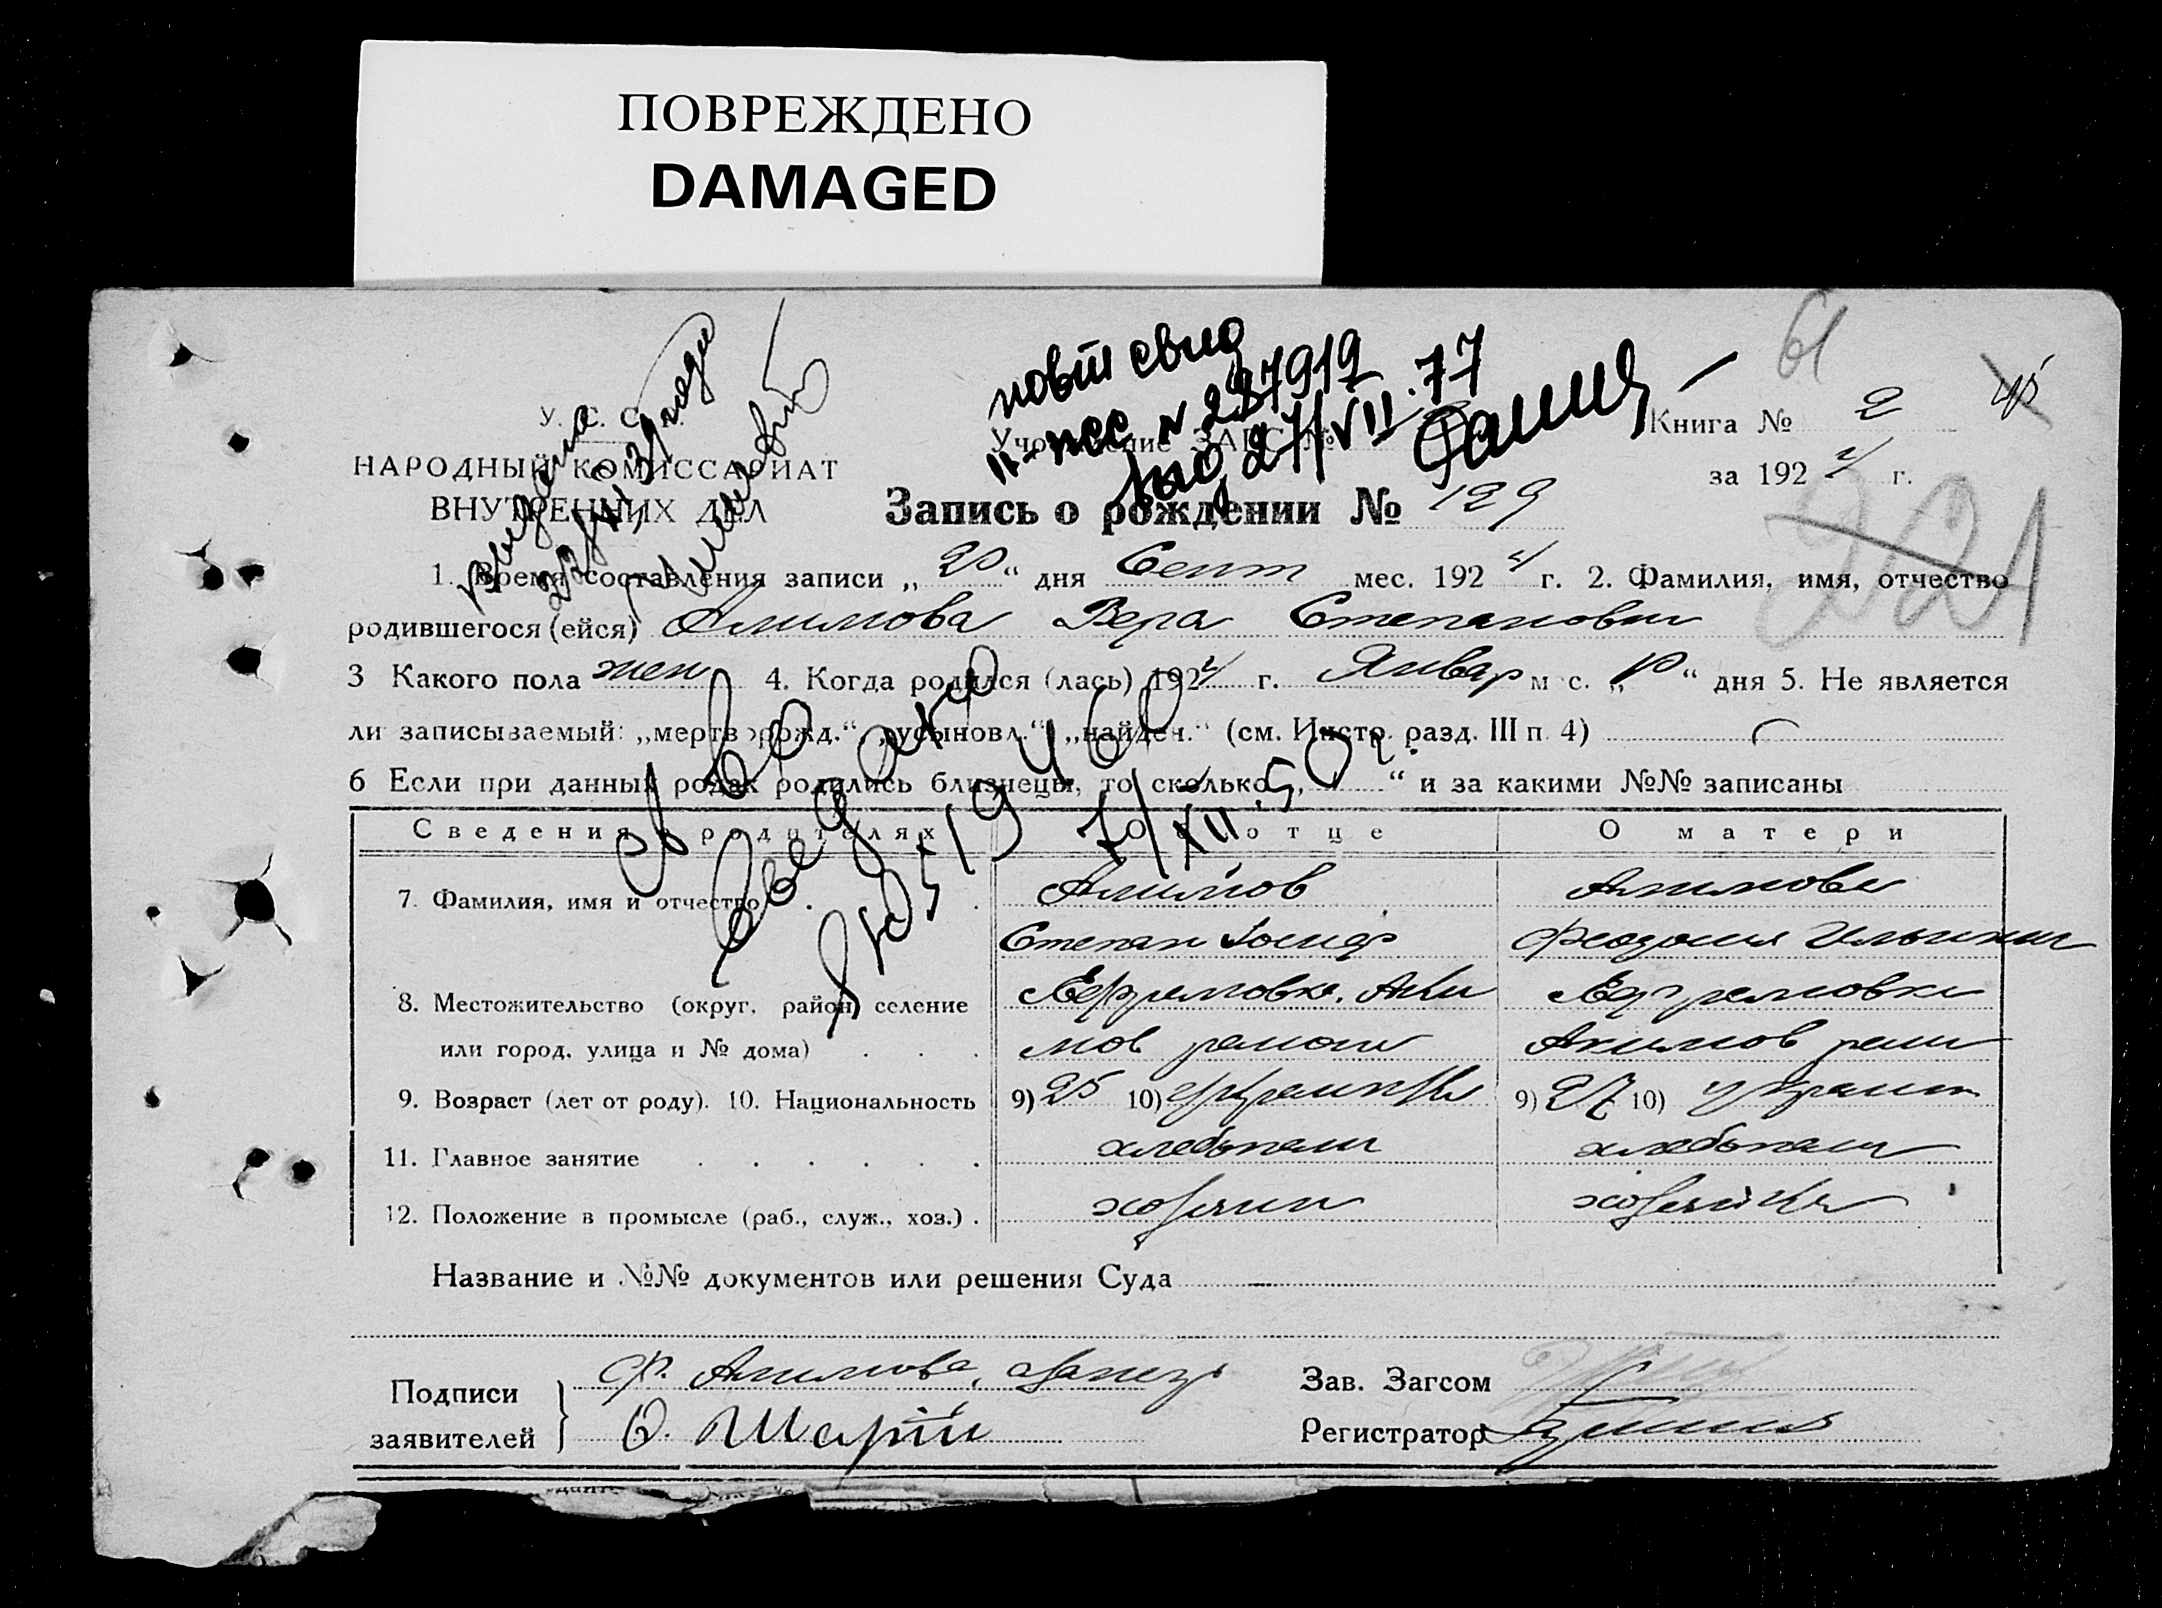 ПОВРЕЖДЕНО
DAMAGED
У. С. С. Р.
НАРОДНЫЙ КОМИССАРИАТ
ВНУТРЕННИХ ДЕЛ
Учреждение ЗАГС №
Книга № 2
за 1924 г.
61
221
повт свид
II-ЖСС № 237919
27/VII.77
Запись о рождении № 129
1. Время составления записи „20“ дня Сент мес. 1924 г. 2. Фамилия, имя, отчество
родившегося (ейся) Алимова Вера Степановн
3 Какого пола жен 4. Когда родился (лась) 1924 г. Январ мес. „10“ дня 5. Не является
ли записываемый: „мертворожд.“, „усыновл.“ „найден.“ (см. Инстр. разд. III п. 4)
6 Если при данных родах родились близнецы, то сколько „ “ и за какими №№ записаны
Сведения о родителях О отце О матери
7. Фамилия, имя и отчество Алимов Алимова
Степан Феодосия Ильинич
8. Местожительство (округ, район, селение Ефремовка, Аки Ефремовка
или город, улица и № дома) мов район Акимов рай
9. Возраст (лет от роду). 10. Национальность 9) 25 10) 9) 27 10) украин
11. Главное занятие хлебопаш хлебопаш
12. Положение в промысле (раб., служ., хоз.) хозяин хозяйка
Название и №№ документов или решения Суда
Подписи заявителей } Ф. Алимова,
О. Шарій
Зав. Загсом
Регистратор